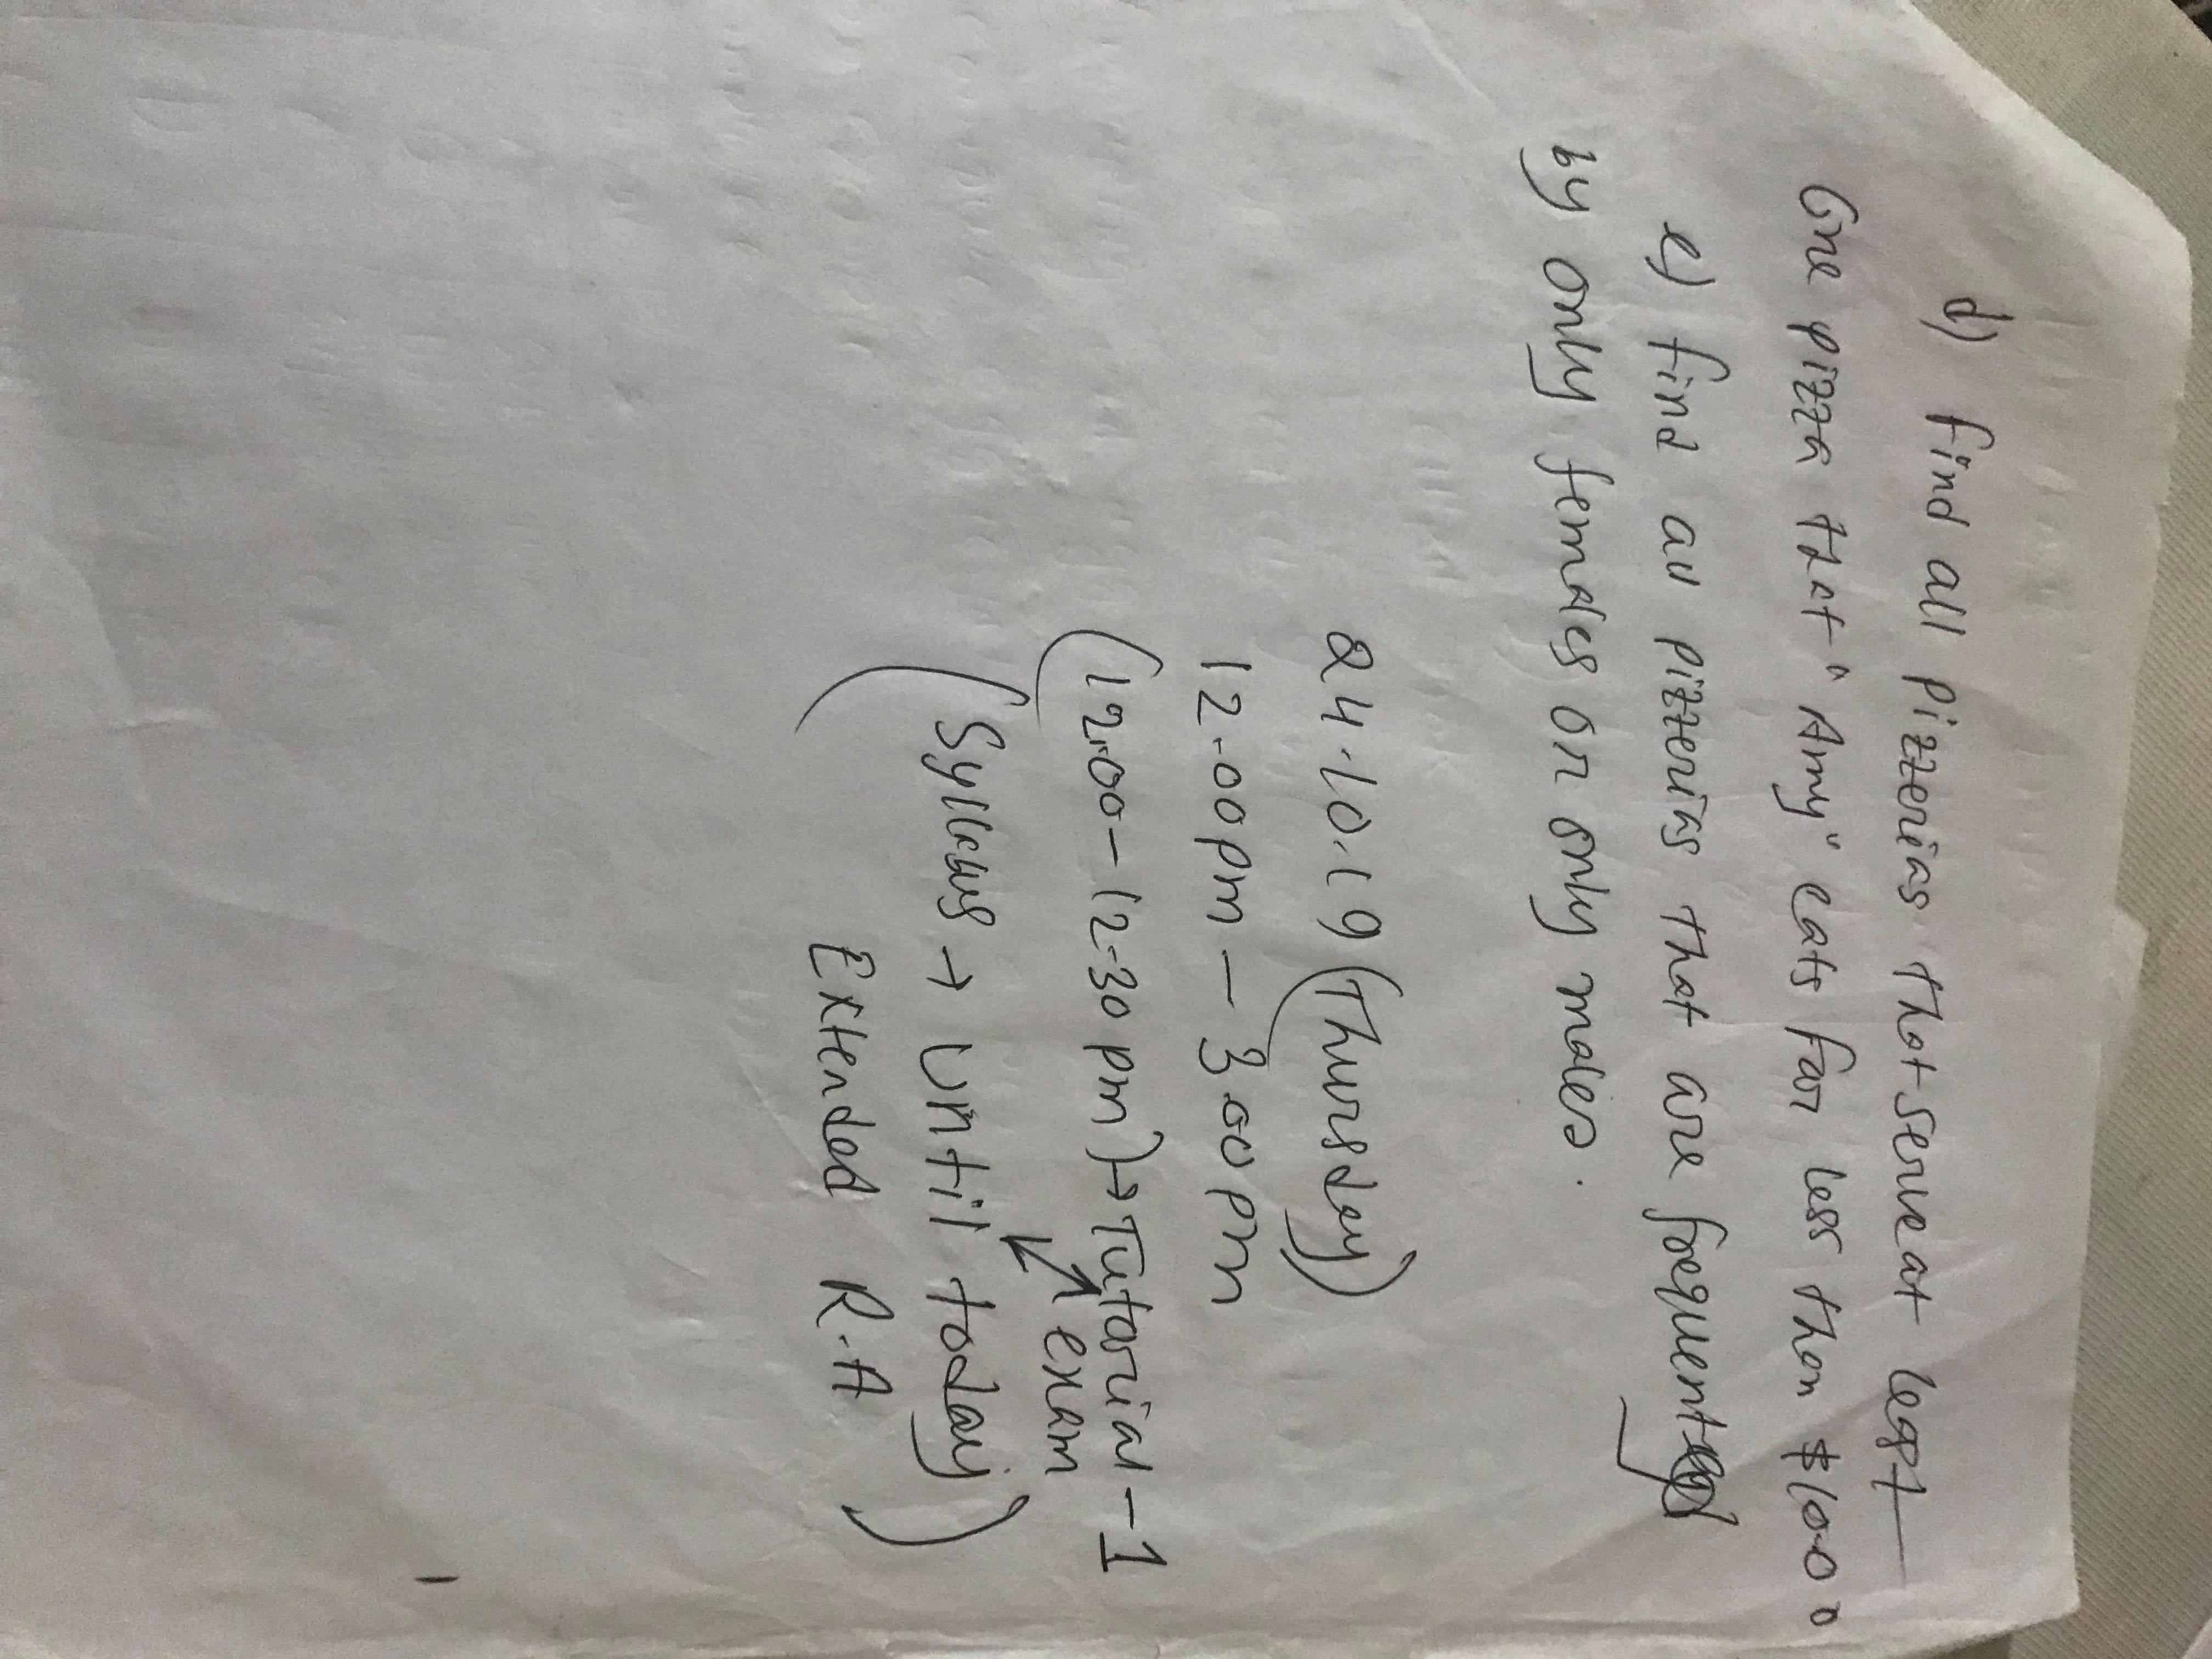 d) find all pizzerias that serve at least
One pizza that "Amy" eats for less than $10.00
e) find all pizzerias that are frequented
by only females or only males.
24.10.19 (Thursday)
12.00pm - 3.00 pm
(12.00 - 12.30 pm) → Tutorial - 1
exam
(Syllabus → Until today)
Extended R.A